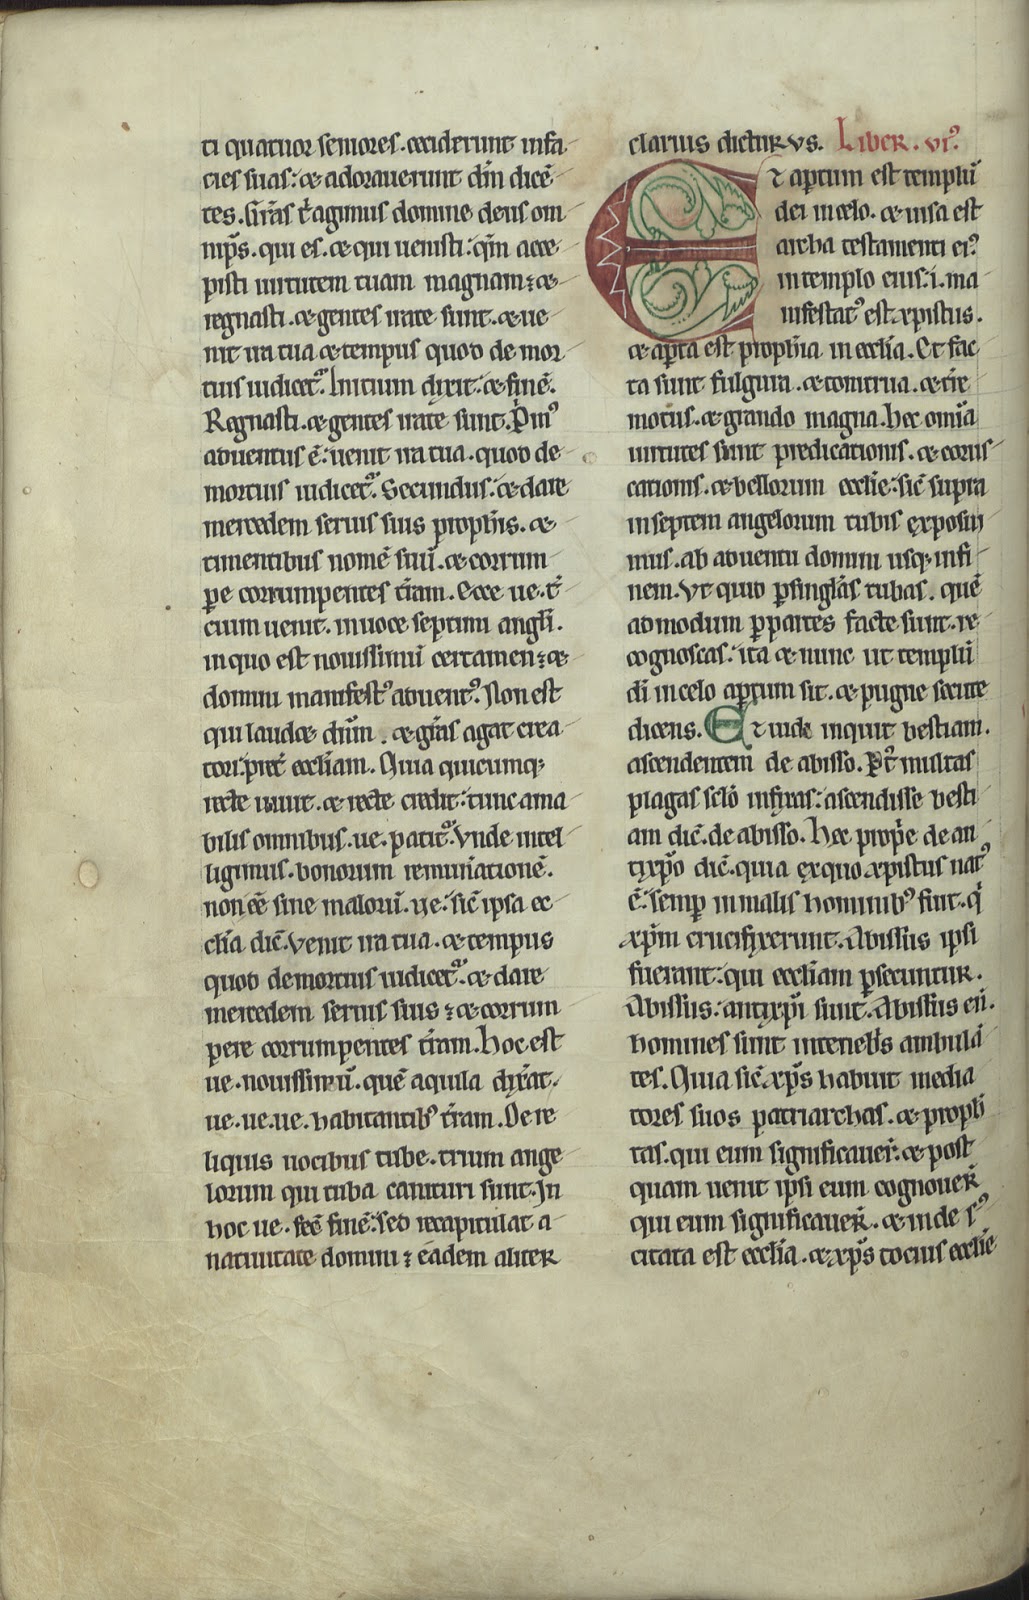 ti quatuor seniores. ceciderunt infa
cies suas: & adorauerunt dm̄ dicē
tes. Gr̄as t' agimus domine deus om
nip̄s. qui es. & qui uenisti: qm̄ acce
pisti uirtutem tuam magnam: &
regnasti. & gentes irate sunt. & ue
nit ira tua & tempus quod de mor
tuis iudicet᷑. Initium dixit: & finē.
Regnasti. & gentes irate sunt. Pm᷒
aduentus ē: uenit ira tua. quod de
mortuis iudicet᷑. Secundus: & dare
mercedem seruis suis proph̄is. &
timentibus nomē tuū. & corrum
pe corrumpentes t̄ram. Ecce ue. t̄
cium uenit. in uoce septimi angl̄i.
in quo est nouissimū certamen: &
domini manifest᷒ aduent᷒. Non est
qui laud& dn̄m. & gr̄as agat crea
tori: pret̄ eccl̄iam. Quia quicumq;
recte uiuit. & recte credit: tunc ama
bilis omnibus. ue. patit᷑. Vnde intel
ligimus. bonorum remun̄ationē.
non eē sine malorū. ue: sic̄ ipsa ec
cl̄ia dic̄. Venit ira tua. & tempus
quod demortuis iudicet᷑. & dare
mercedem seruis suis: & corrum
pere corrumpentes t̄ram. Hoc est
ue. nouissimū. quē aquila dix̄at.
ue. ue. ue. habitantib᷒ t̄ram. De re
liquis uocibus tube. trium ange
lorum qui tuba canituri sunt. In
hoc ue. fec̄ finē: sed recapitulat a
natiuitate domini: eadem aliter
clarius dicturus. Liber. vi᷒.
Et ap̄tum est templū
dei in celo. & uisa est
archa testamenti ei᷒
in templo eius: i. ma
nifestat᷒ est xp̄istus.
& ap̄ta est proph̄ia in eccl̄ia. Et fac
ta sunt fulgura. & tonitrua. & t̄re
motus. & grando magna. Hec omīa
uirtutes sunt predicationis. & corus
cationis. & bellorum eccl̄ie: sic̄ supra
in septem angelorum tubis exposui
mus. ab aduentu domini usq; infi
nem. Vt quid p̄ singl̄as tubas. quē
admodum p̄ partes facte sunt. re
cognoscas: ita & nunc ut templū
dī in celo ap̄tum sit. & pugne secute
dicens. Et uide inquit bestiam.
ascendentem de abisso. P̄t multas
plagas sclō infixas: ascendisse besti
am dic̄. de abisso. Hec prop̄e de an
tixp̄o dic̄. quia ex quo xp̄istus nat᷒
ē: semp̄ in malis hominib᷒ fuit. q̄
xp̄m crucifixerunt. Abissus ipsi
fuerant: qui eccl̄iam p̄secuntur.
Abissus: antixp̄i sunt. Abissus eni̅.
homines sunt in tenebr̄is ambulā
tes. Quia sic̄ xp̄s habuit media
tores suos patriarchas. & proph̄
tas. qui eum significauer̄. & post
quam uenit ipsi eum cognouer̄
qui eum significauer̄. & inde s᷒
citata est eccl̄ia. & xp̄s tocius eccl̄ie